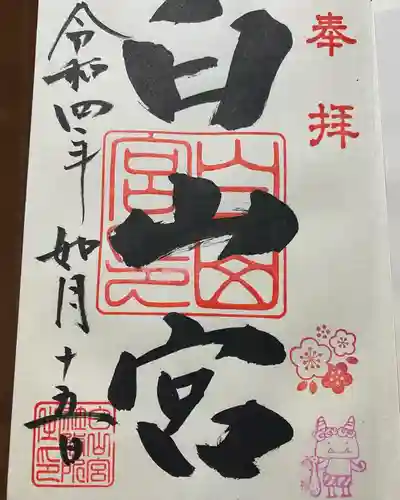 奉拝
白山宮
令和四年如月十五日